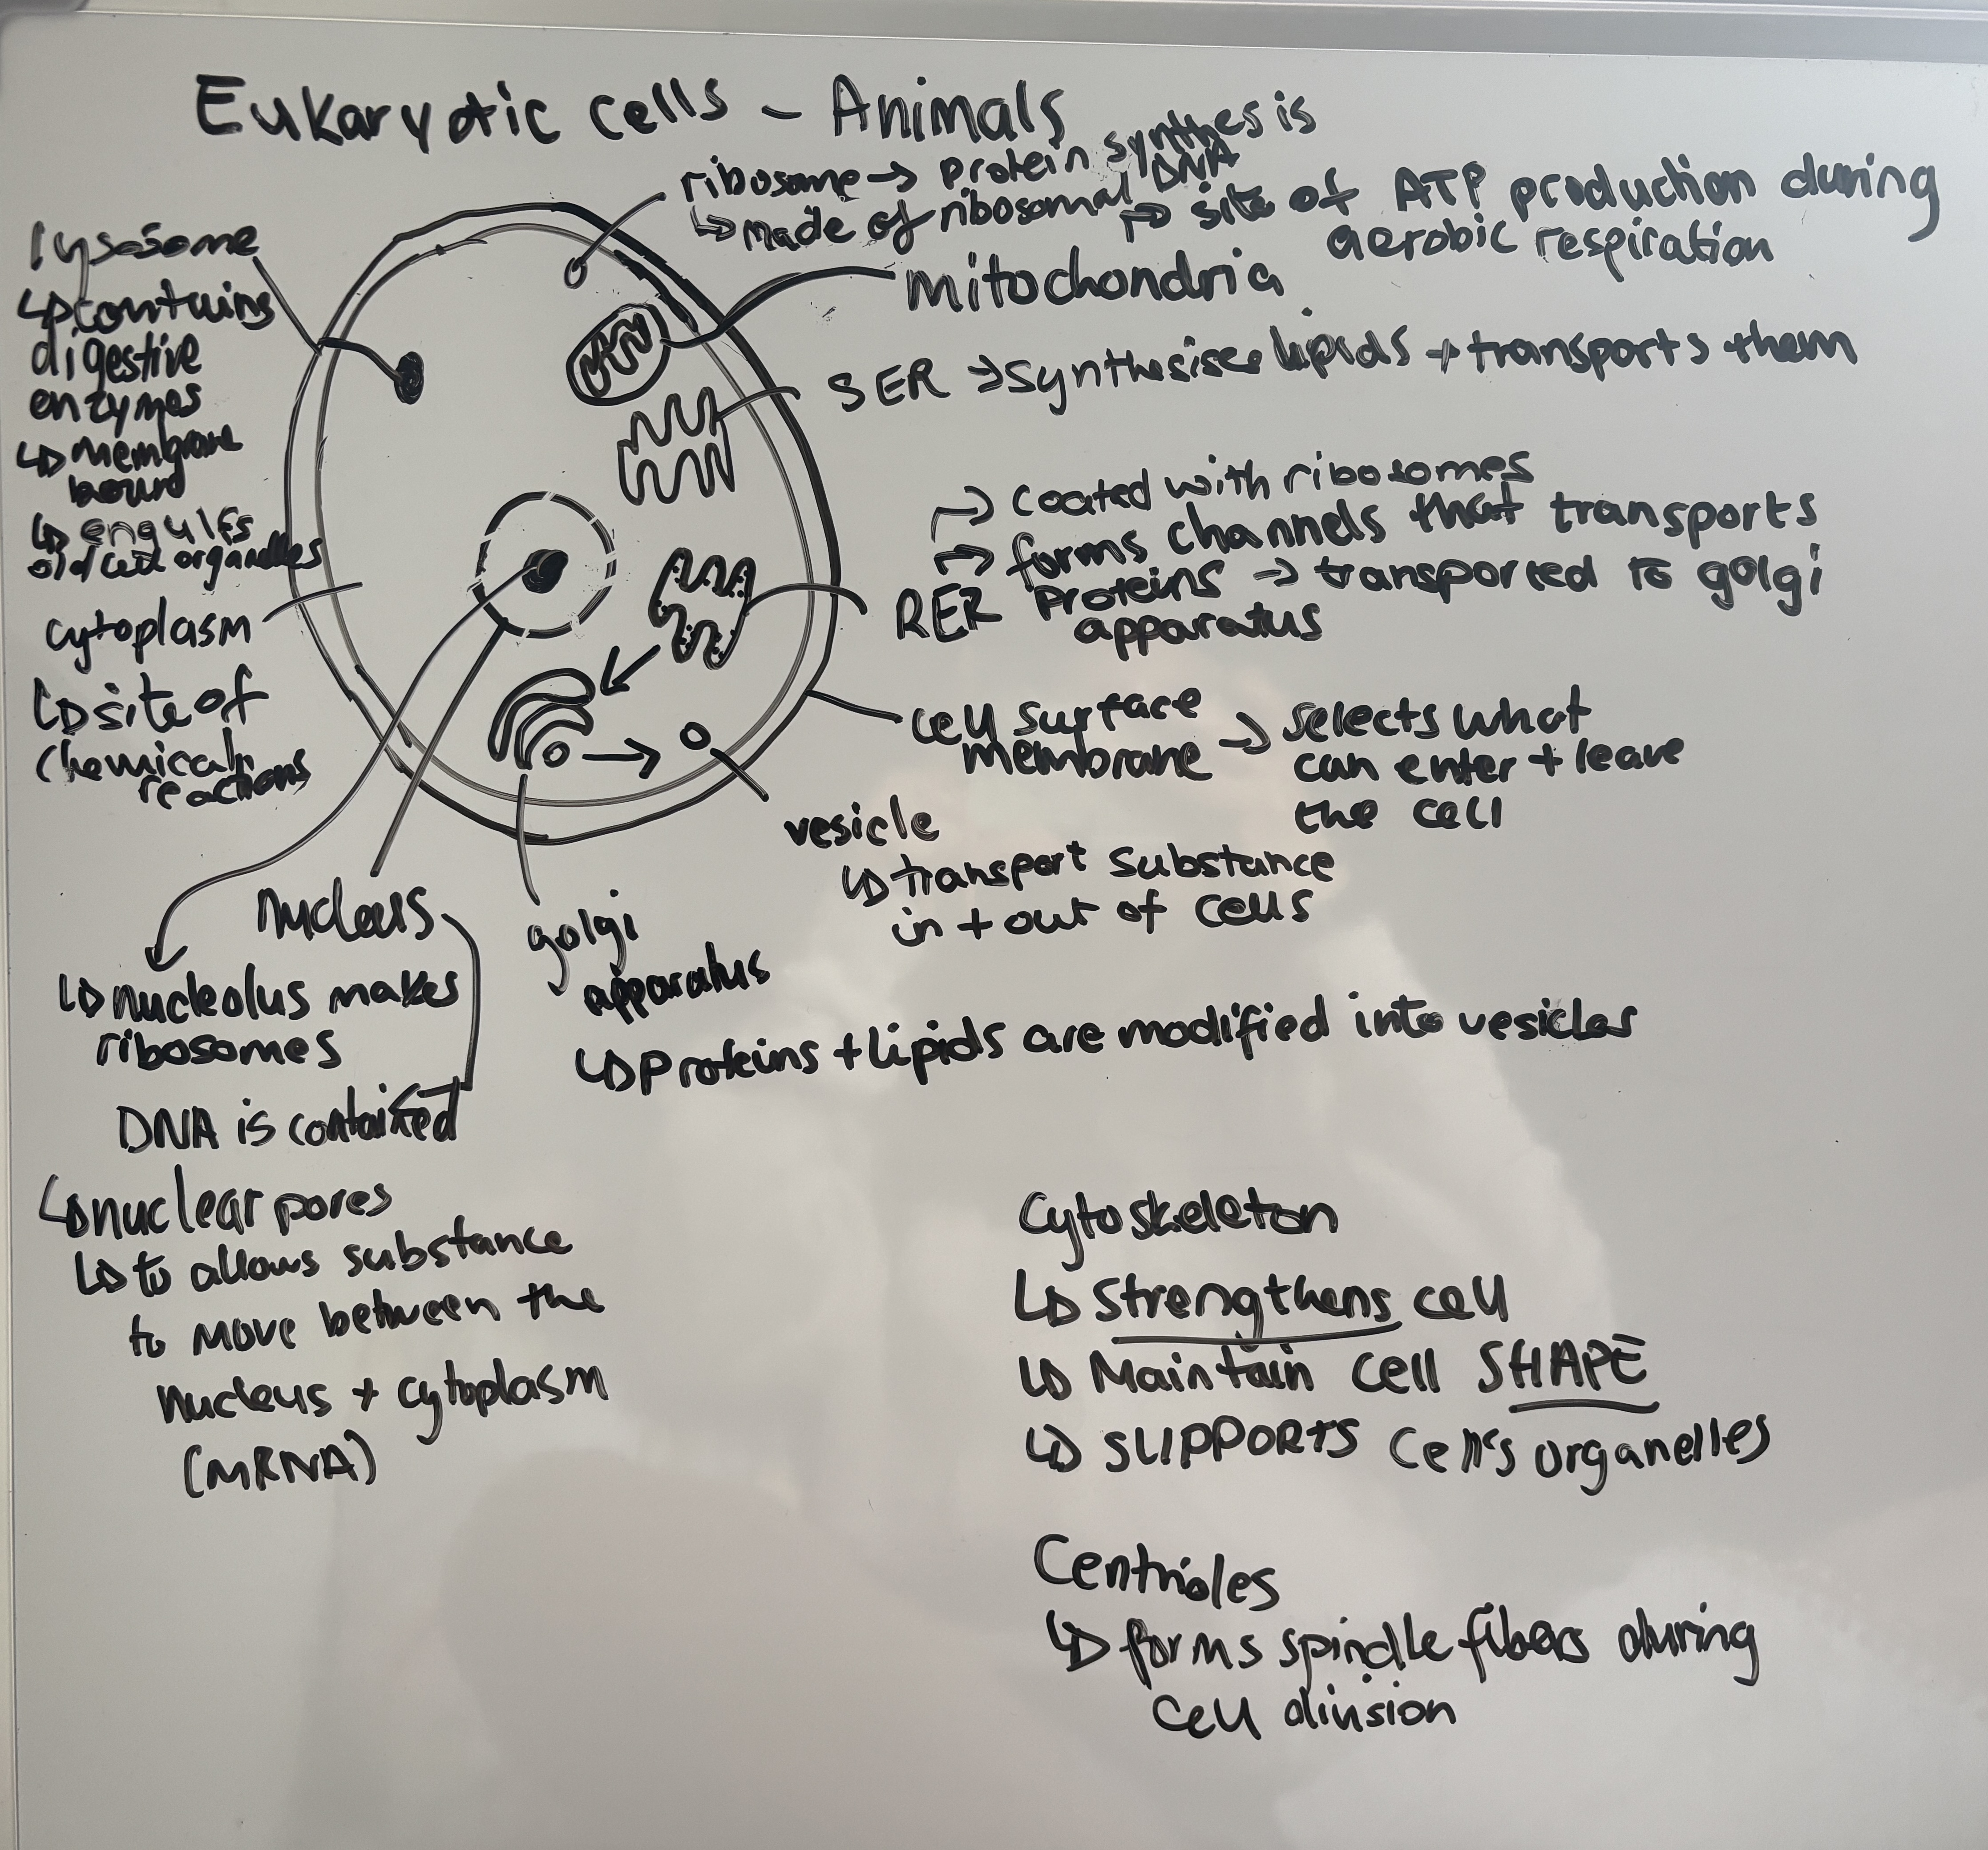 Eukaryotic cells - Animals
ribosome → protein synthesis
↳ made of ribosomal DNA
→ site of ATP production during
aerobic respiration
mitochondria
SER → synthesises lipids + transports them
→ coated with ribosomes
→ forms channels that transports
RER proteins → transported to golgi
apparatus
cell surface
membrane → selects what
can enter + leave
the cell
vesicle
↳ transport substance
in + out of cells
golgi
apparatus
↳ proteins + lipids are modified into vesicles
lysosome
↳ contains
digestive
enzymes
↳ membrane
bound
↳ engulfs
old cell organelles
cytoplasm
↳ site of
chemical
reactions
nucleus
↳ nucleolus makes
ribosomes
DNA is contained
↳ nuclear pores
↳ to allows substance
to move between the
nucleus + cytoplasm
(mRNA)
Cytoskeleton
↳ strengthens cell
↳ Maintain cell SHAPE
↳ SUPPORTS cell's organelles
Centrioles
↳ forms spindle fibers during
cell division